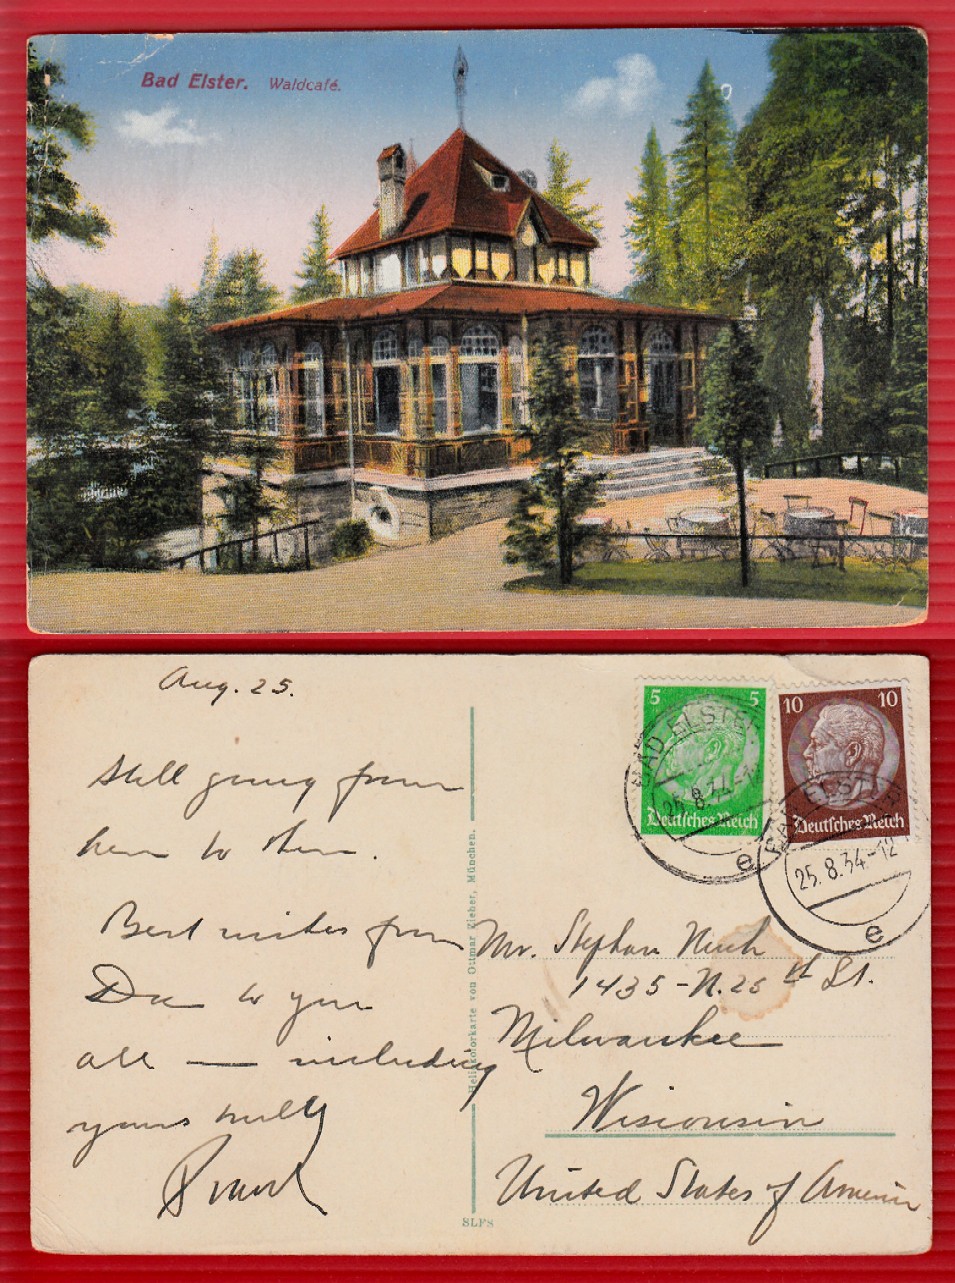 Bad Elster. Waldcafé.
Aug. 25.
Still going from
here to there.
Best wishes from
to you
all — including
yours truly
5 5
Deutsches Reich
10 10
Deutsches Reich
BAD ELSTER
25.8.34-12
e
BAD ELSTER
25.8.34-12
e
Mr. Stephan
1435-N. 25th St.
Milwaukee
Wisconsin
United States of America
Heliokolorkarte von Ottmar Zieher, München.
SLFS